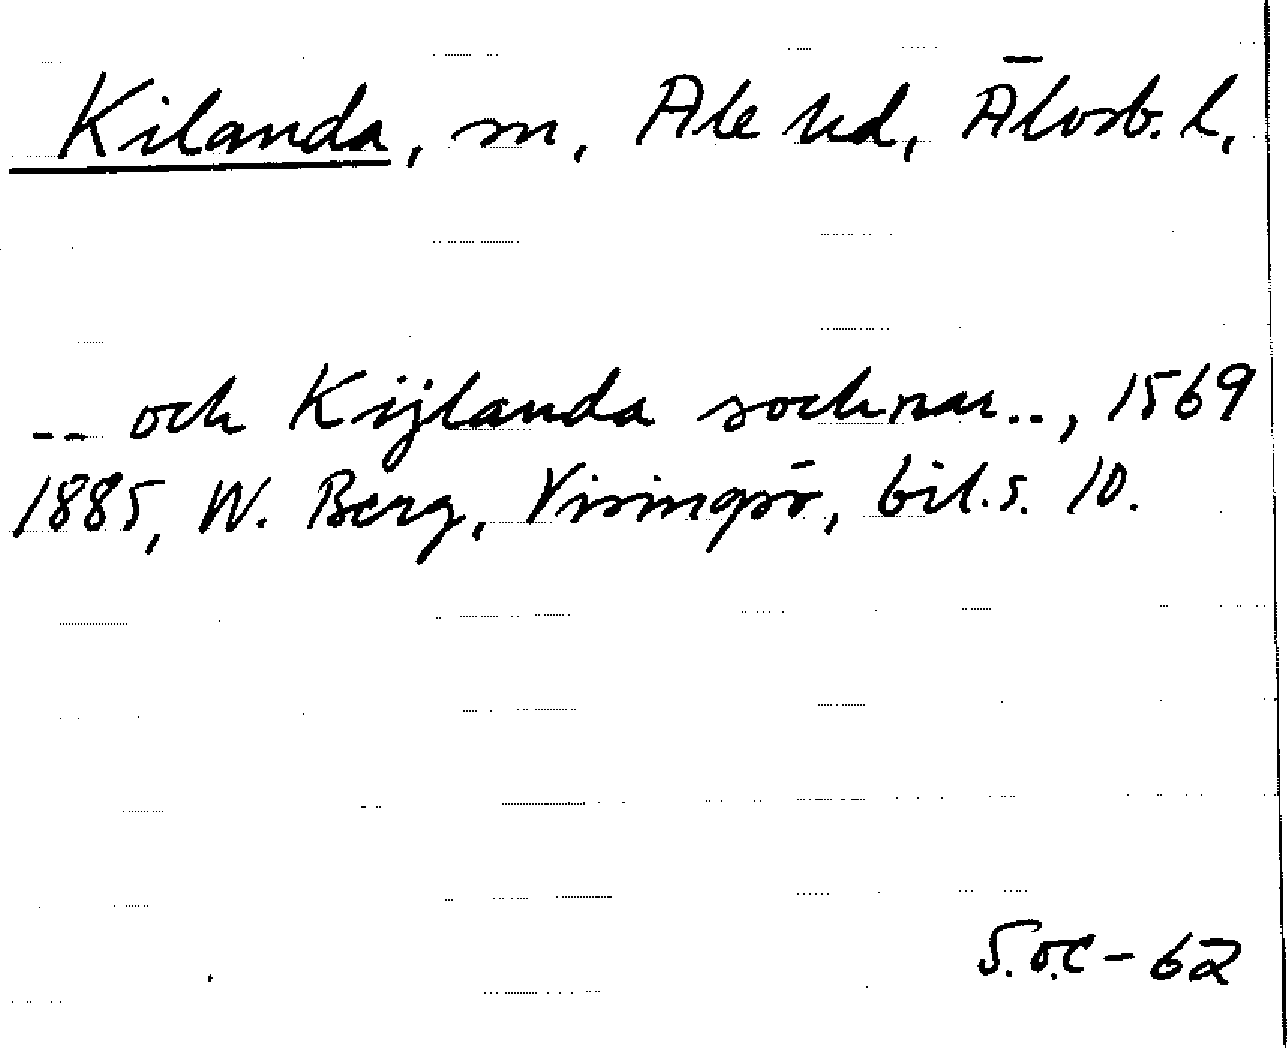 Kilanda, sn, Ale hd, Älvsb. l,
-- och Kijlanda socknar.., 1569
1885, W. Berg, Visingsö, bil. s. 10.
S.o.C - 62